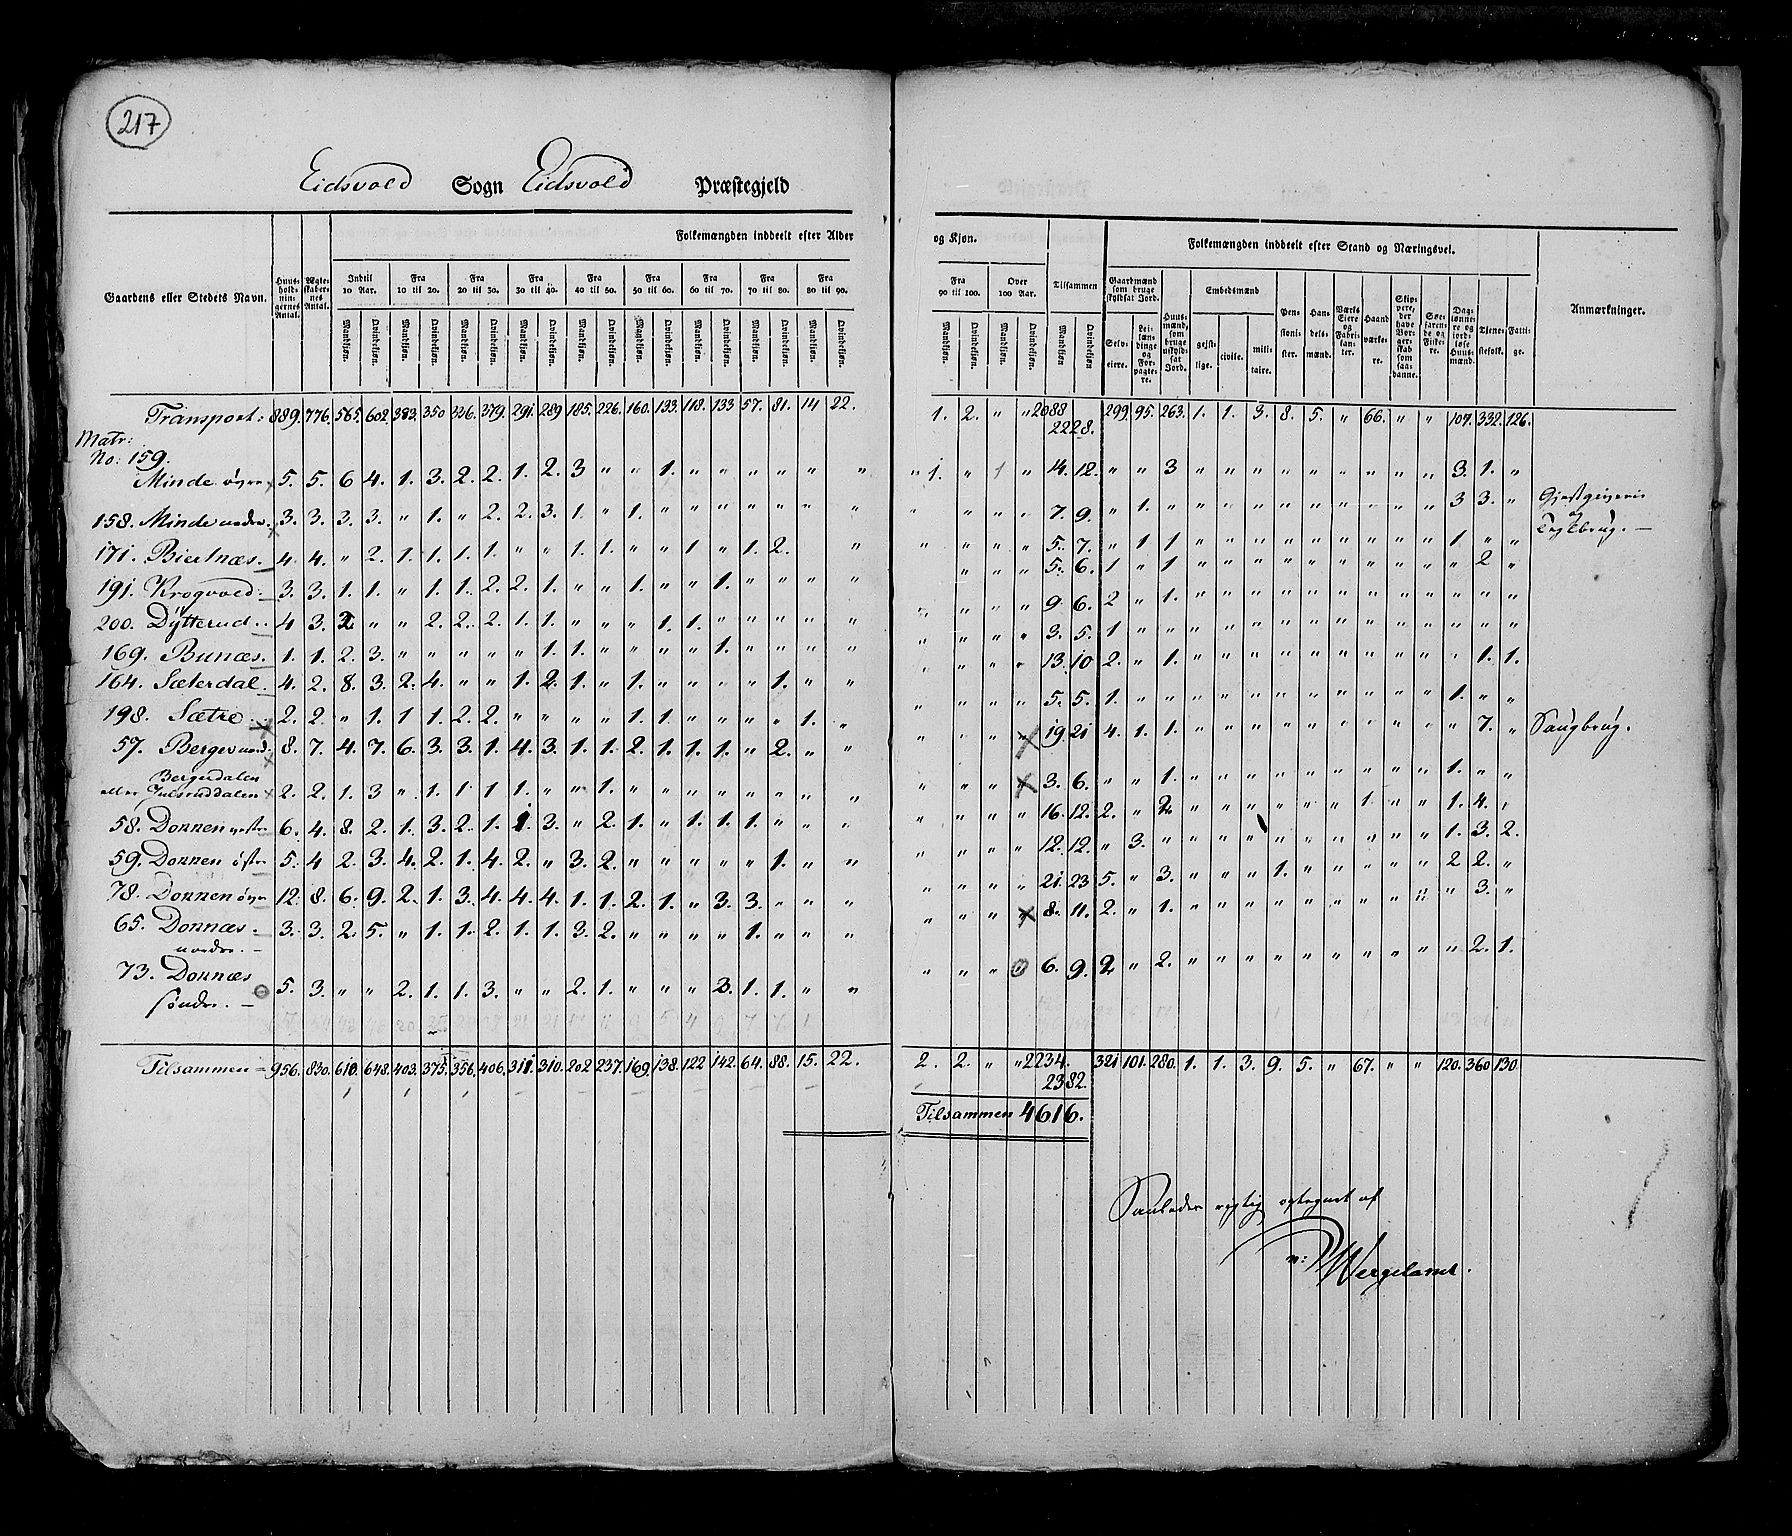 217
Eidsvold Sogn Eidsvold Præstegjeld
Folkemængden inddeelt efter Alder og Kjøn.
Folkemængden inddeelt efter Stand og Næringsvei.
Gaardens eller Stedets Navn.
Huusholdningernes Antal.
Ægteskabernes Antal.
Indtil 10 Aar.
Fra 10 til 20.
Fra 20 til 30.
Fra 30 til 40.
Fra 40 til 50.
Fra 50 til 60.
Fra 60 til 70.
Fra 70 til 80.
Fra 80 til 90.
Fra 90 til 100.
Over 100 Aar.
Tilsammen
Mandkjøn. Qvindekjøn.
Gaardmænd som bruge skyldsat Jord.
Selveiere.
Leilændinge og Forpagtere.
Huusmænd, som bruge uskyldsat Jord.
Embedsmænd
geistlige. civile. militaire.
Pensionister.
Handelsmænd.
Værks Eiere og Fabrikanter.
Haandværkere.
Skippere, der have Borgerskab som saadanne.
Søefarende og Fiskere.
Daglønnere og jordløse Huusmænd.
Tjenestefolk.
Fattige.
Anmærkninger.
Transport: 889. 776. 565. 602. 383. 350 326. 379. 291. 289 185. 226. 160. 133. 118. 133 57. 81. 14 22. 1. 2. " " 2088 2228. 299. 95. 263. 1. 1. 3. 8. 5. " 66. " " 107. 332. 126.
Matr:
No: 159.
Minde øvre 5. 5. 6 4. 1. 3. 2. 2. 1. 2. 3 " " 1. " " " " " " 1. " 1 " 14. 12. " " 3 " " " " " " " " " 3. 1. "
158. Minde nedre. 3. 3. 3. 3. " 1. " 2. 2. 3. 1. " 1. " " " " " " " " " " " 7. 9. " 1. " " " " " " " " " " 3 3. " Gjestgiverie og Teglbrug.
171. Biertnæs. 4. 4. " 2. 1. 1. 1. 1. " " 1. 1. " " 1 " 1. 2. " " " " " 5. 7. " 1 1 " " " " " " " " " 1 " "
191. Krogvold 3. 3. 1. 1. " 1. 1. 2. 2. 1. " " 1. " " 1. " " " " " " " 5. 6. 1 " 1 " " " " " " " " " " 2 "
200. Dytterud. 4 3. 2 " " 2. 2. 2. 1. 1. " " " 1. 1. " " " " " " " " " 9. 6. 2 " 1. " " " " " " " " " " " "
169. Bunæs. 1. 1. 2. 3. " " " " " 1. 1. " " " " 1. " " " " " " " " 3. 5. 1 " " " " " " " " " " " " " "
164. Sæterdal. 4. 2. 8. 3. 2. 4. " " 1. 2. 1. " 1. " " " " 1. " " " " " " 13. 10 2. " 1. " " " " " " " " " " 1. 1.
198. Sætre 2. 2. " 1. 1 1. 2. 2. " " " " 1. 1. " " " " 1. " " " " " 5. 5. 1. " " " " " " " " " " " 1. " "
57. Berger nord. 8. 7. 4. 7. 6. 3. 3. 1. 4. 3. 1. 1. 2. 1. 1. 1. " 2. " " " " " " 19. 21 4. 1. 1. " " " " " " " " " " 7. " Saugbrug.
Bergerdalen
eller Julsruddalen 2. 2. 1. 3 " 1. 1 1 1. " " 1. " " " " " " " " " " " 3. 6. " " 1. " " " " " " " " " 1. " "
58. Donnen vestre 6. 4. 8. 2. 1. 3. 2. 1. 1. 3. " 2. 1. " 1. 1. 1. " " " " " " " 16. 12. 2. " 2 " " " " " " 1. " " 1. 4. "
59. Donnen østre 5. 4 2. 3. 4. 2. 1. 4. 2. " 3. 2. " " " " " 1. " " " " " " 12. 12. " 3. " " " " " " " " " " 1. 3. 2.
78. Donnen øvre 12. 8. 6. 9. 2. 1. 3. 4. 4. 4. 1. 1. 2. 1. " 3. 3. " " " " " " " 21. 23 5. " 3. " " " 1. " " " " " 2 2. "
65. Donnæs nordre. 3. 3. 2. 5. " 1. 1. 2. 1. 1. 3. 2. " " " " 1. " " " " " " 8. 11. 2. " 1. " " " " " " " " " " 3. "
73. Donnæs søndre. 5. 3. " " 2. 1. 1. 3. " " 2. 1. " " " 3. 1. 1. " " " " " 6. 9. 2 " 2. " " " " " " " " " " 2. 1.
Tilsammen 956. 830. 610. 648. 403. 375. 356. 406. 311. 310. 202 237. 169. 138. 122 142. 64. 88. 15. 22. 2. 2. " " 2234. 2382. 321 101. 280. 1. 1. 3. 9. 5. " 67. " " 120. 360 130
Tilsammen 4616.
Saaledes rigtig optegnet af
N: Wergeland.